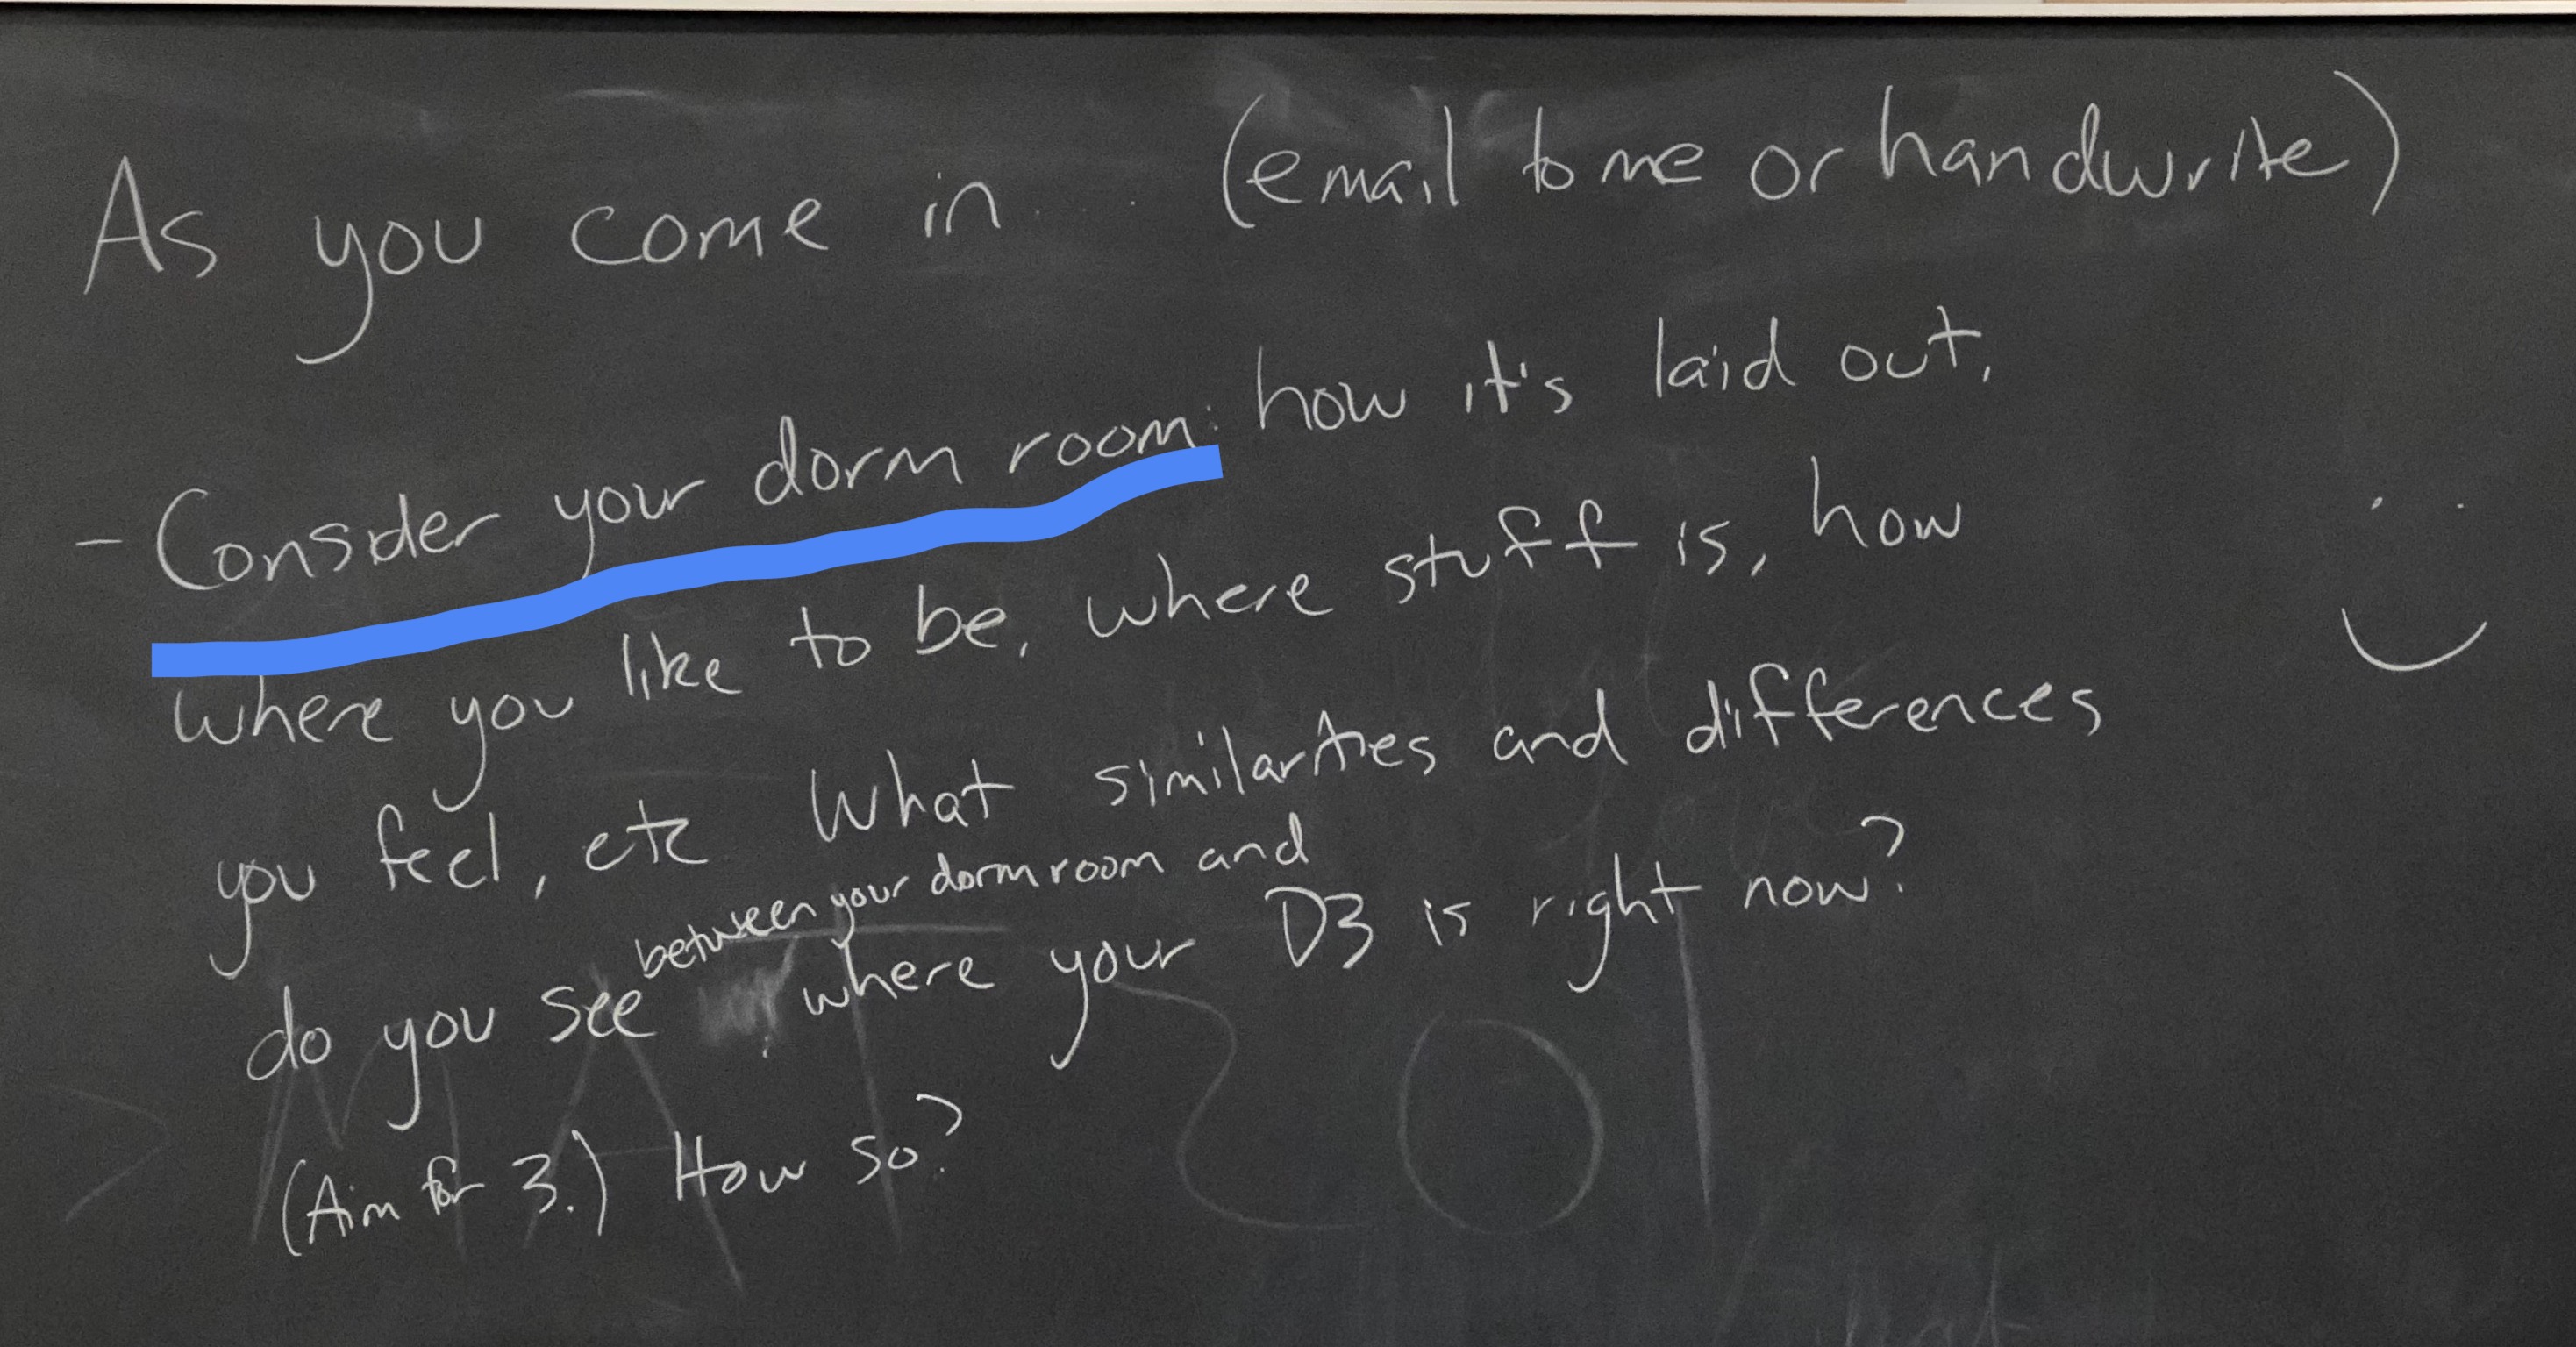 As you come in... (email to me or handwrite)
- Consider your dorm room: how it's laid out,
where you like to be, where stuff is, how
you feel, etc. What similarities and differences
do you see between your dorm room and where your D3 is right now?
(Aim for 3.) How so?